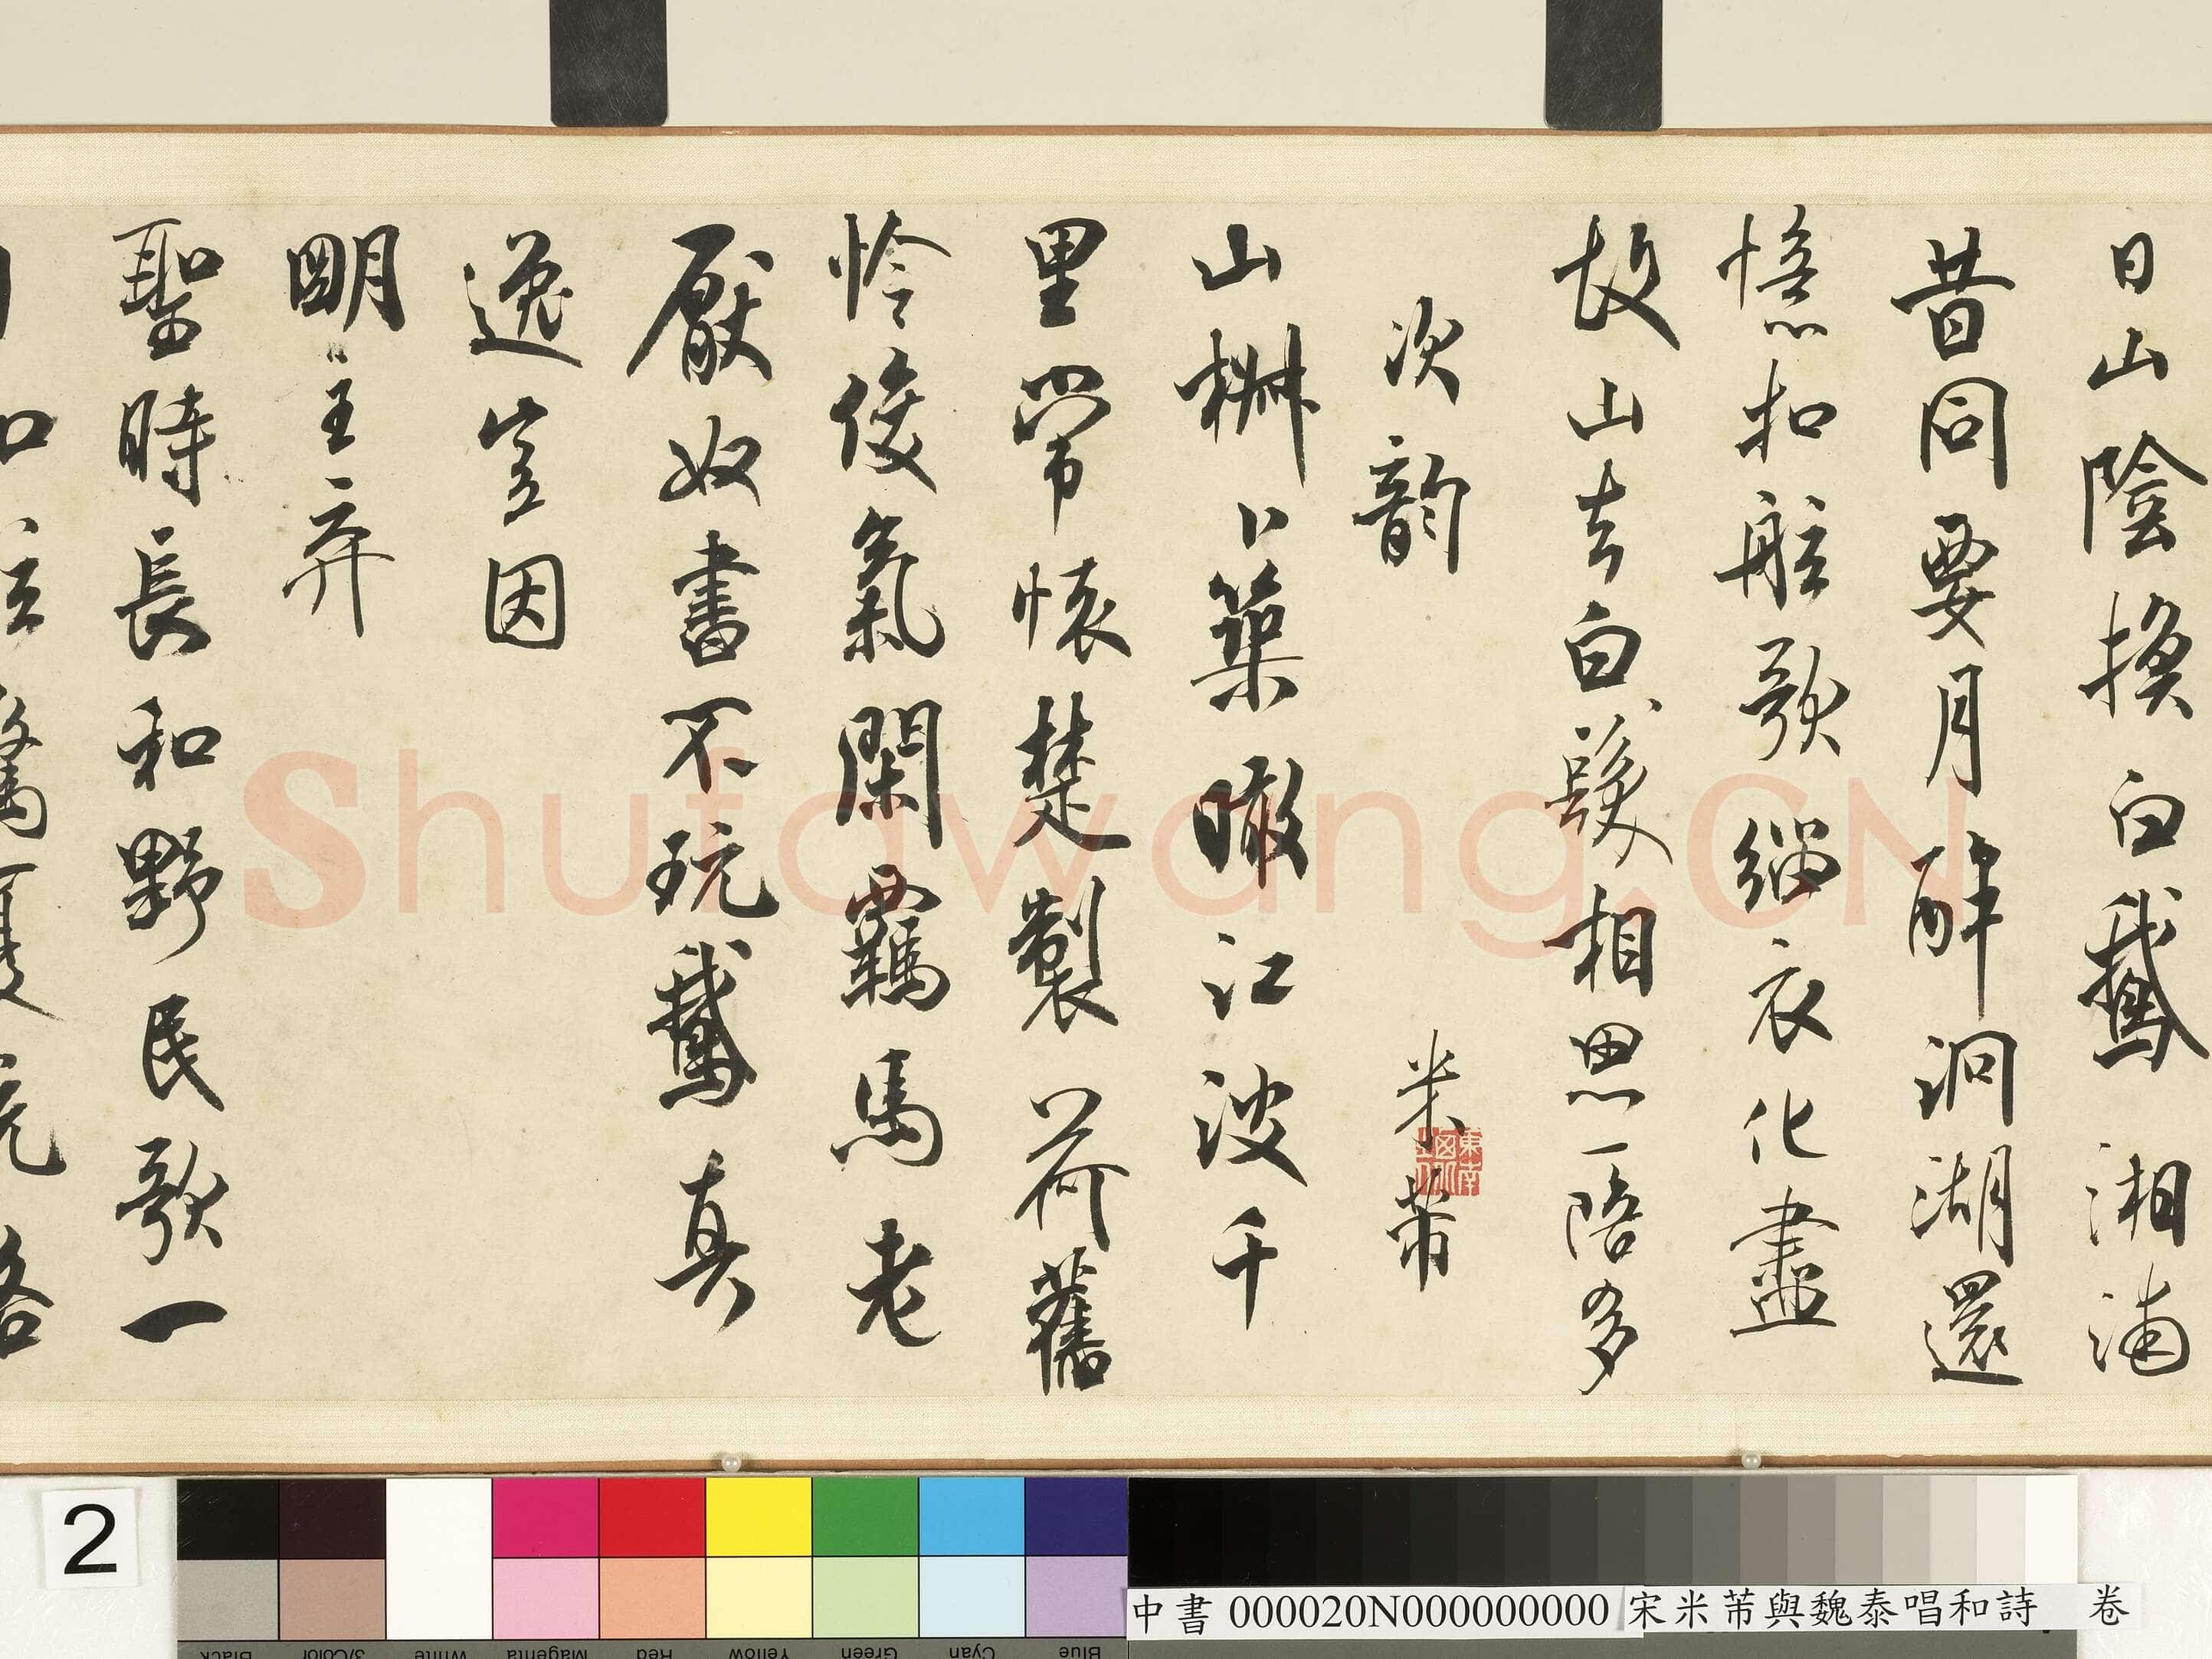 日山陰換白鵝湘浦
昔同要月醉洞湖還
憶扣舷歌緇衣化盡
故山去白髮相思一陪多
次韻 米芾
山椒卜築瞰江波千
里常懷楚製荷舊
憐俊氣閑羈馬老
厭奴書不玩鵝真
逸豈因
明主弃
聖時長和野民歌一
Shufawang.CN
2
中書 000020N000000000 宋米芾與魏泰唱和詩 卷
Black 3/Color White Magenta Red Yellow Green Cyan Blue